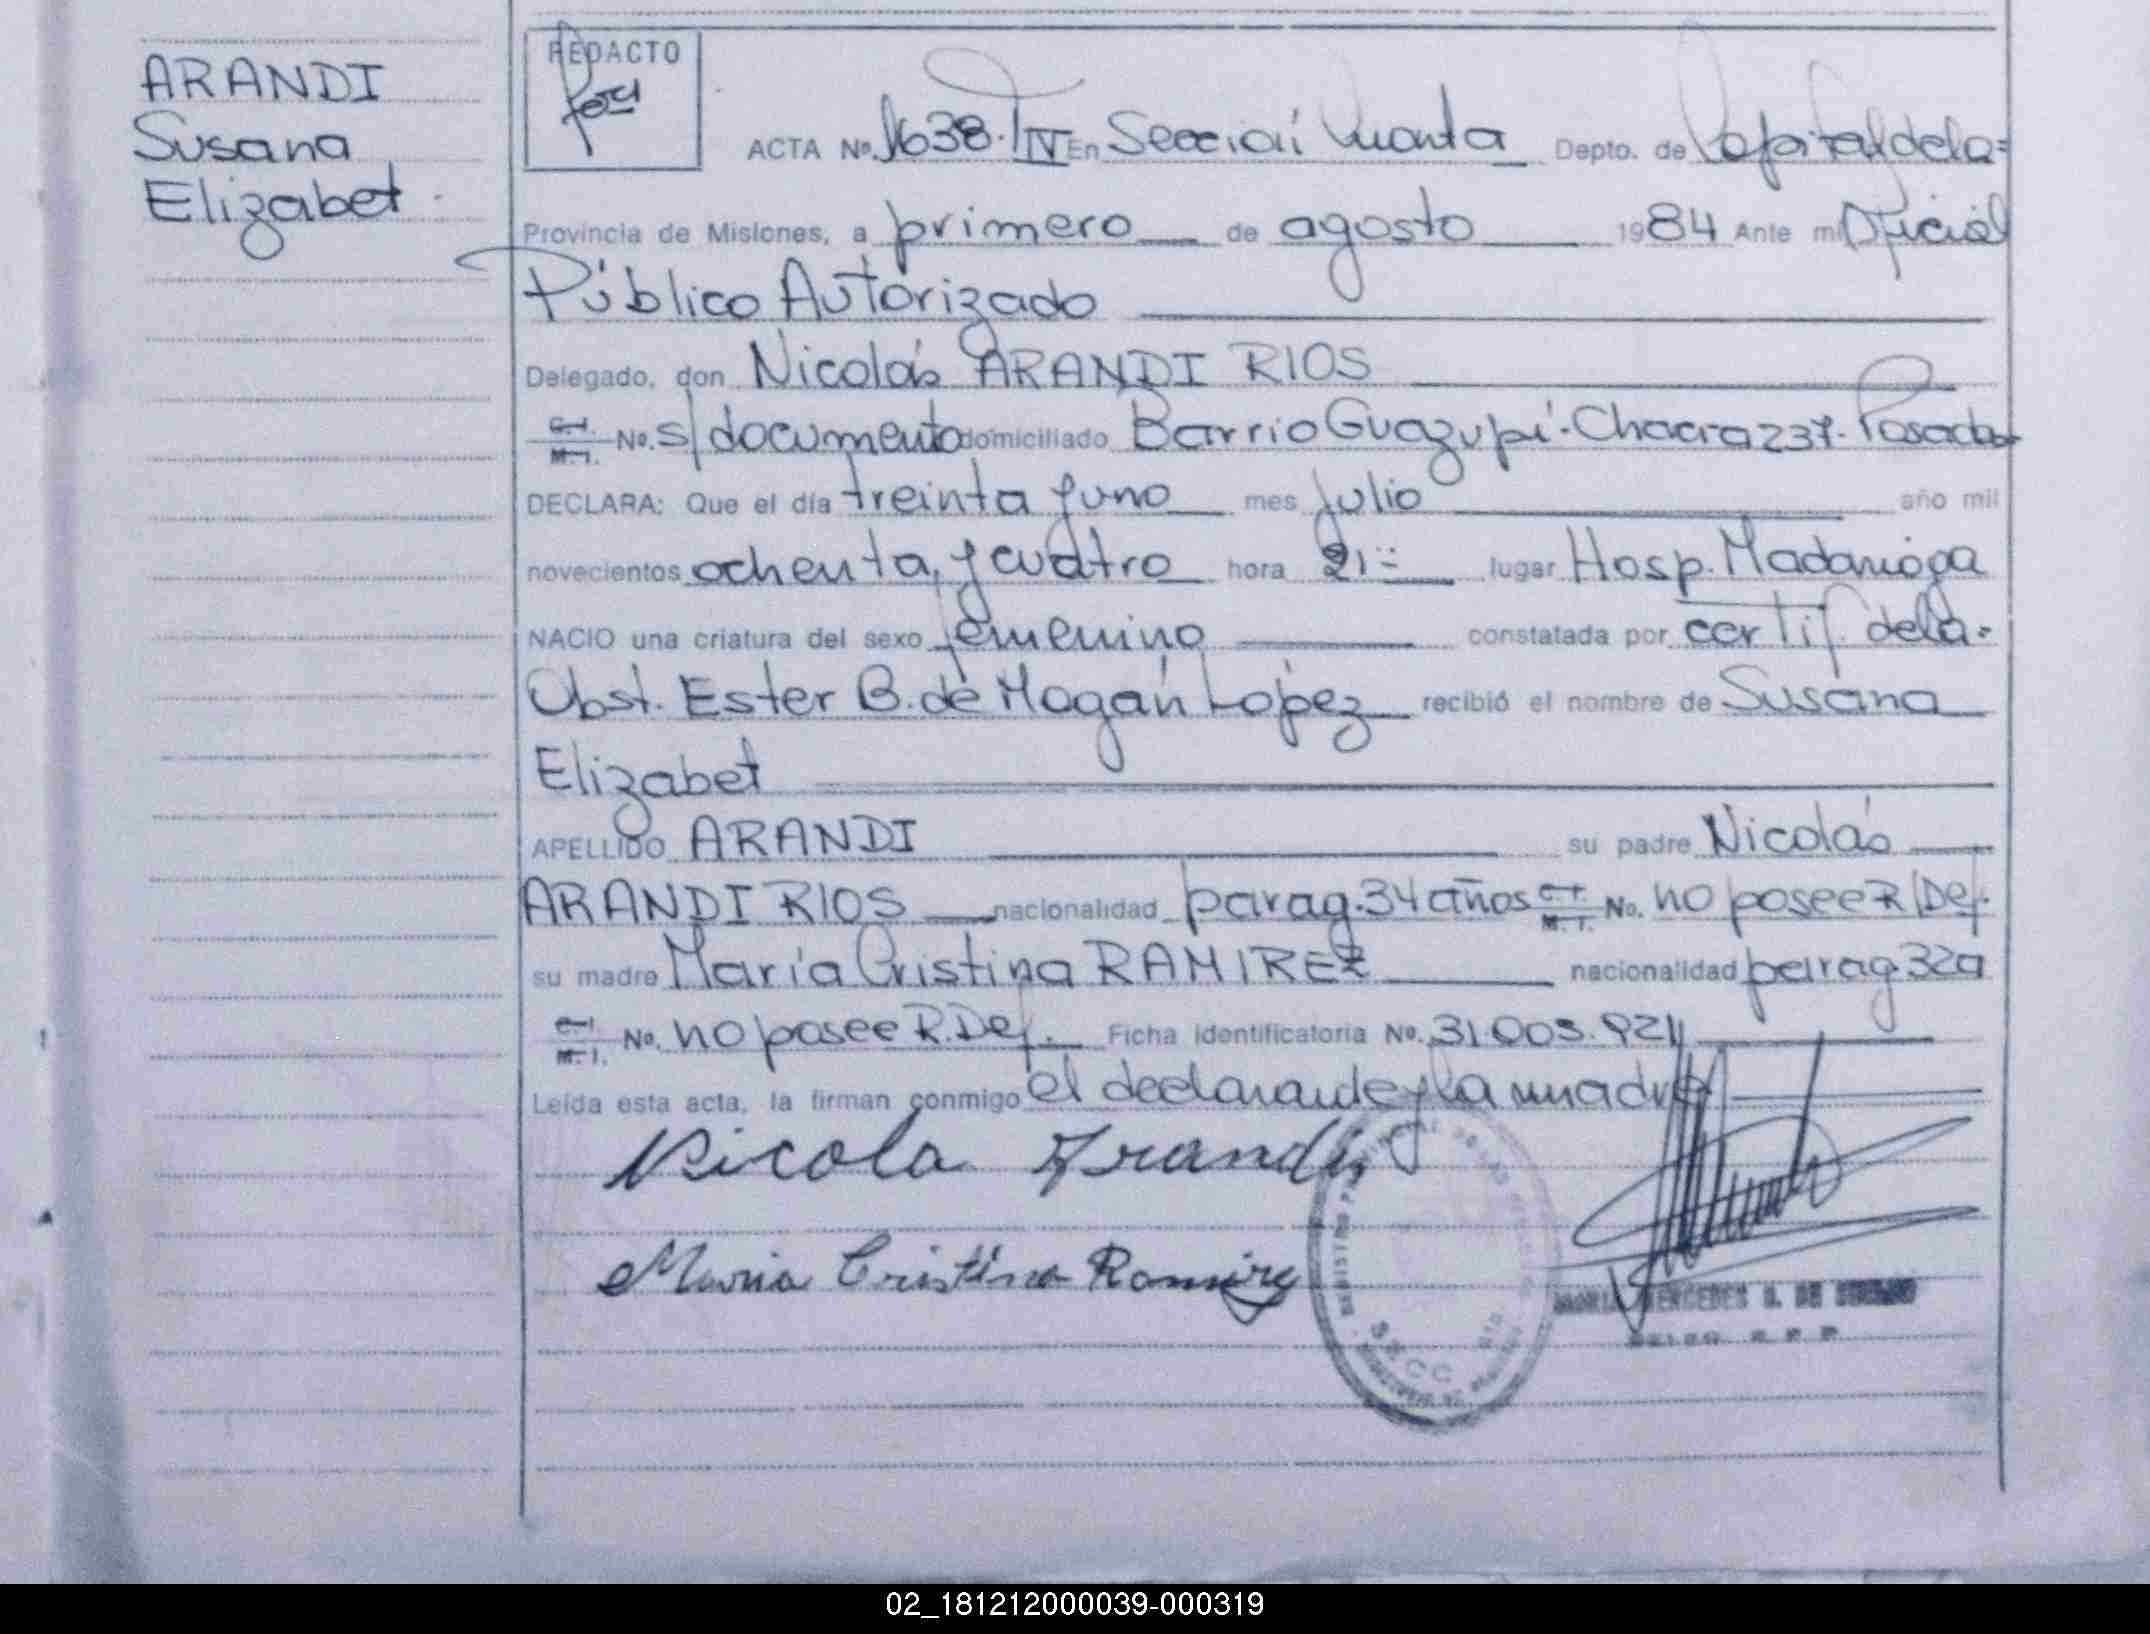 ARANDI
Susana
Elizabet
REDACTO
ACTA No. 1638. IV En Sección Cuarta Depto. de Capital de la
Provincia de Misiones, a primero de agosto 1984 Ante mi Oficial
Público Autorizado
Delegado, don Nicolás ARANDI RIOS
C.I. M.I. No. s/documento domiciliado Barrio Guazupí. Chacra 237. Posadas
DECLARA: Que el día treinta y uno mes julio año mil
novecientos ochenta y cuatro hora 21 lugar Hosp. Madariaga
NACIO una criatura del sexo femenino constatada por certif. de la
Obst. Ester B. de Magán López recibió el nombre de Susana
Elizabet
APELLIDO ARANDI su padre Nicolás
ARANDI RIOS nacionalidad parag. 34 años C.I. M.I. No. no posee R/Def.
su madre María Cristina RAMIREZ nacionalidad parag. 32a
C.I. M.I. No. no posee R. Def. Ficha identificatoria No. 31.003.921
Leída esta acta, la firman conmigo el declarante y la madre
Nicola Arandi
Maria Cristina Ramirez
MERCEDES DE
02_181212000039-000319